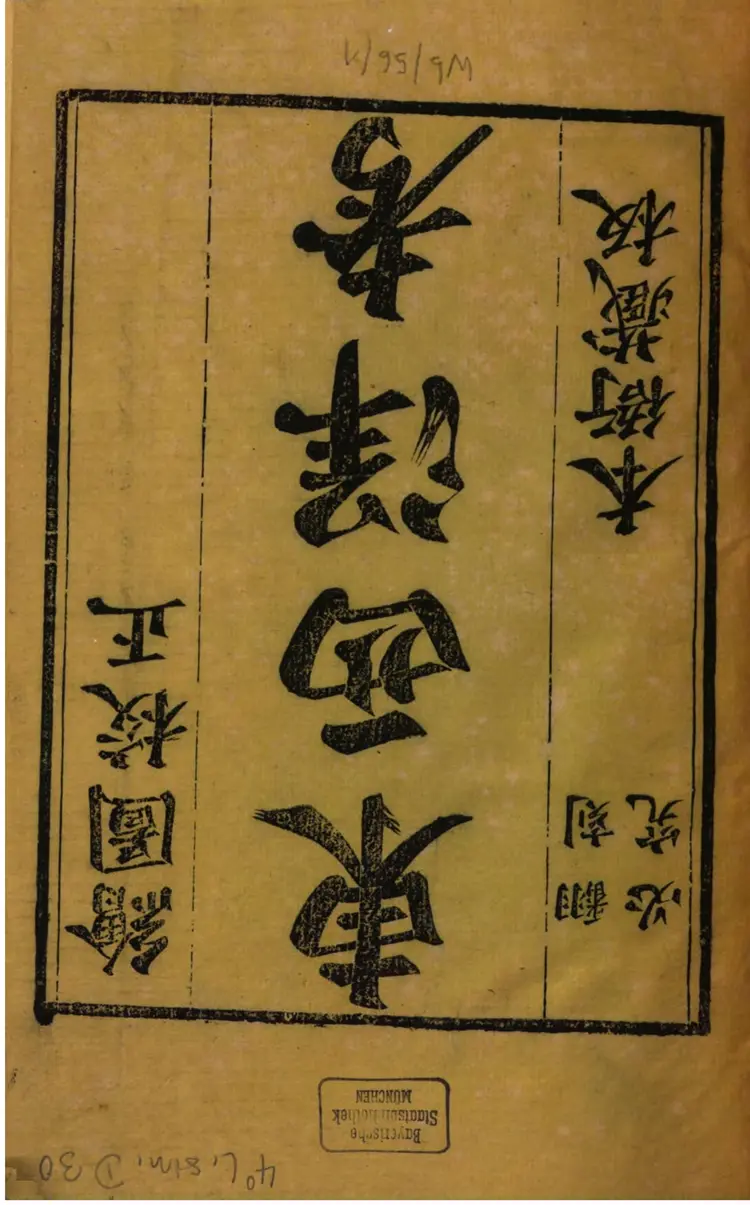 4° L. sin. D 30
Bayerische
Staatsbibliothek
MÜNCHEN
繪圖校正
東西洋考
翻刻
必究
本衙藏板